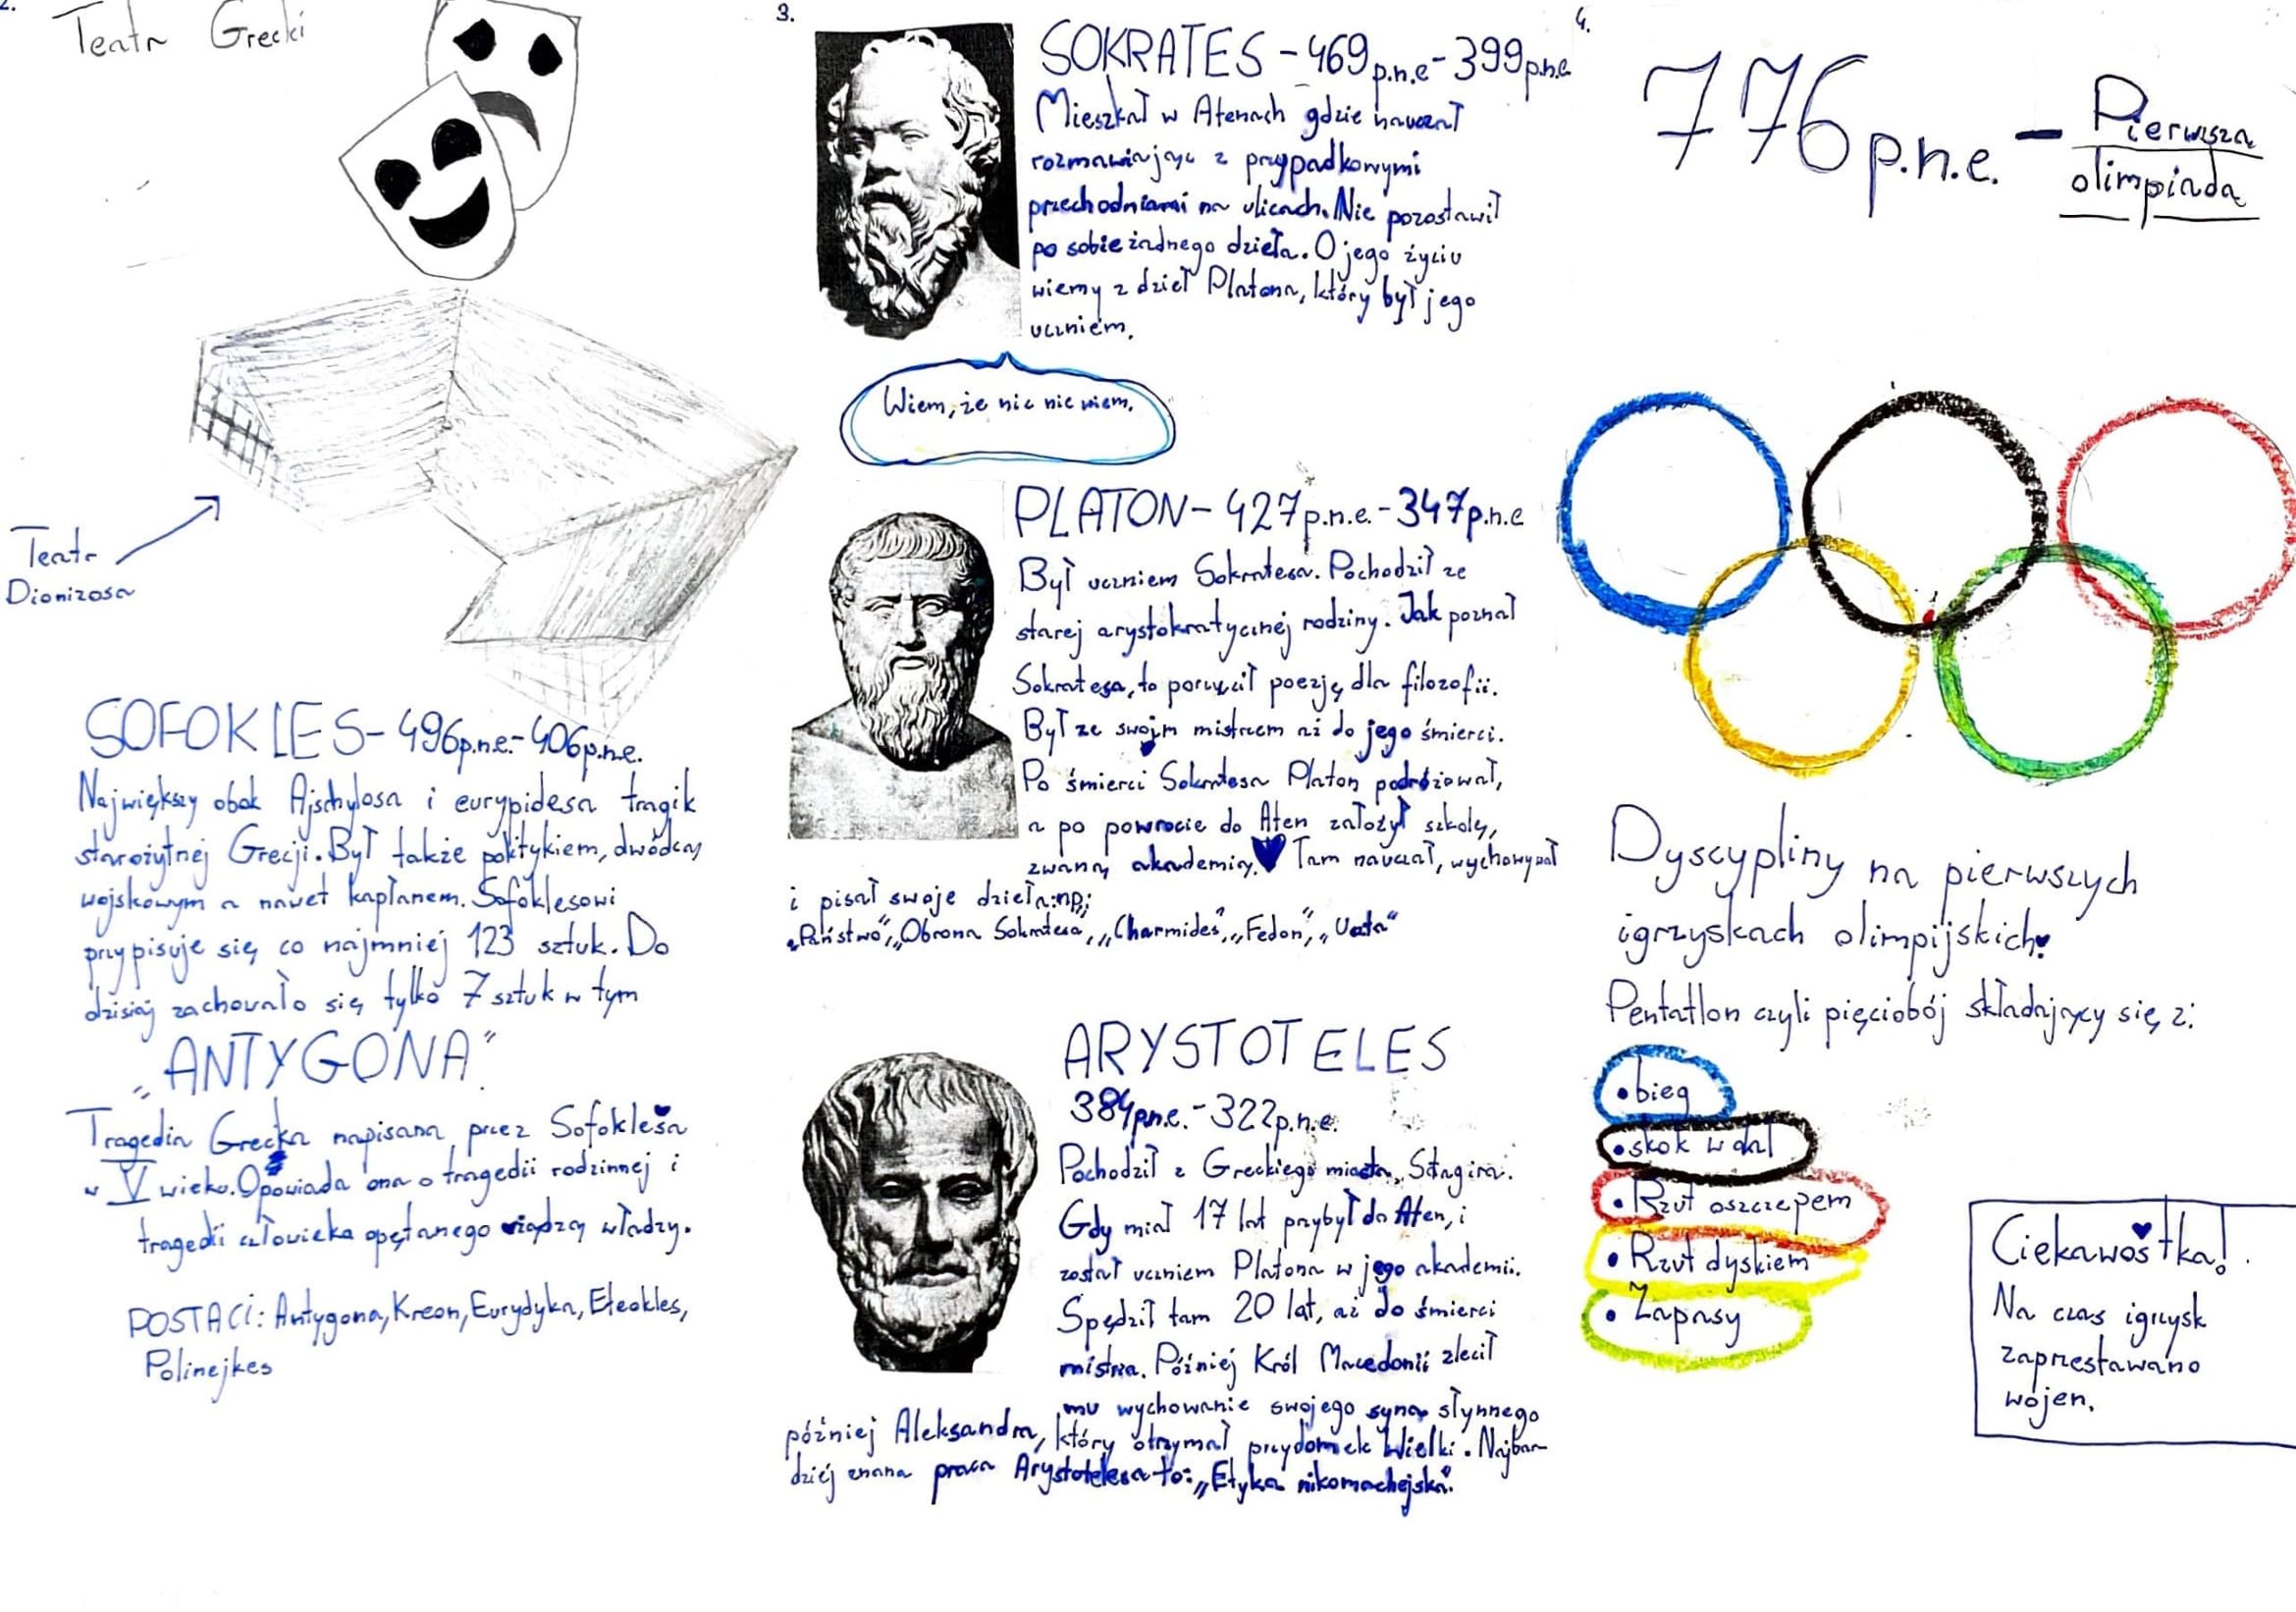 2.
Teatr Grecki
Teatr
Dionizosa
SOFOKLES - 496p.n.e.- 406p.n.e.
Największy obok Ajschylosa i eurypidesa tragik
starożytnej Grecji. Był także politykiem, dwódcą
wojskowym a nawet kapłanem. Sofoklesowi
przypisuje się co najmniej 123 sztuk. Do
dzisiaj zachowało się tylko 7 sztuk w tym
„ANTYGONA”.
Tragedia Grecka napisana przez Sofoklesa
w V wieku. Opowiada ona o tragedii rodzinnej i
tragedii człowieka opętanego rządzą władzy.
POSTACI: Antygona, Kreon, Eurydyka, Eteokles,
Polinejkes
3.
SOKRATES - 469 p.n.e - 399 p.n.e
Mieszkał w Atenach gdzie nauczał
rozmawiając z przypadkowymi
przechodniami na ulicach. Nie pozostawił
po sobie żadnego dzieła. O jego życiu
wiemy z dzieł Platona, który był jego
uczniem.
Wiem, że nic nie wiem.
PLATON - 427p.n.e. - 347p.n.e
Był uczniem Sokratesa. Pochodził ze
starej arystokratycznej rodziny. Jak poznał
Sokratesa, to porzucił poezję dla filozofii.
Był ze swojm mistrzem aż do jego śmierci.
Po śmierci Sokratesa Platon podróżował,
a po powrocie do Aten założył szkołę,
zwaną akademią. Tam nauczał, wychowywał
i pisał swoje dzieła:np:
„Państwo”, „Obrona Sokratesa”, „Charmides”, „Fedon”, „Uczta”
ARYSTOTELES
384p.n.e. - 322p.n.e.
Pochodził z Greckiego miasta, Stagira.
Gdy miał 17 lat przybył do Aten, i
został uczniem Platona w jego akademii.
Spędził tam 20 lat, aż do śmierci
mistrza. Później Król Macedonii zlecił
mu wychowanie swojego syna słynnego
później Aleksandra, który otrzymał przydomek Wielki. Najbar-
dziej znana praca Arystotelesa to: „Etyka nikomachejska”.
4.
776 p.n.e. - Pierwsza
olimpiada
Dyscypliny na pierwszych
igrzyskach olimpijskich:
Pentatlon czyli pięciobój składający się z:
• bieg
• skok w dal
• Rzut oszczepem
• Rzut dyskiem
• Zapasy
Ciekawostka!
Na czas igrzysk
zaprzestawano
wojen.